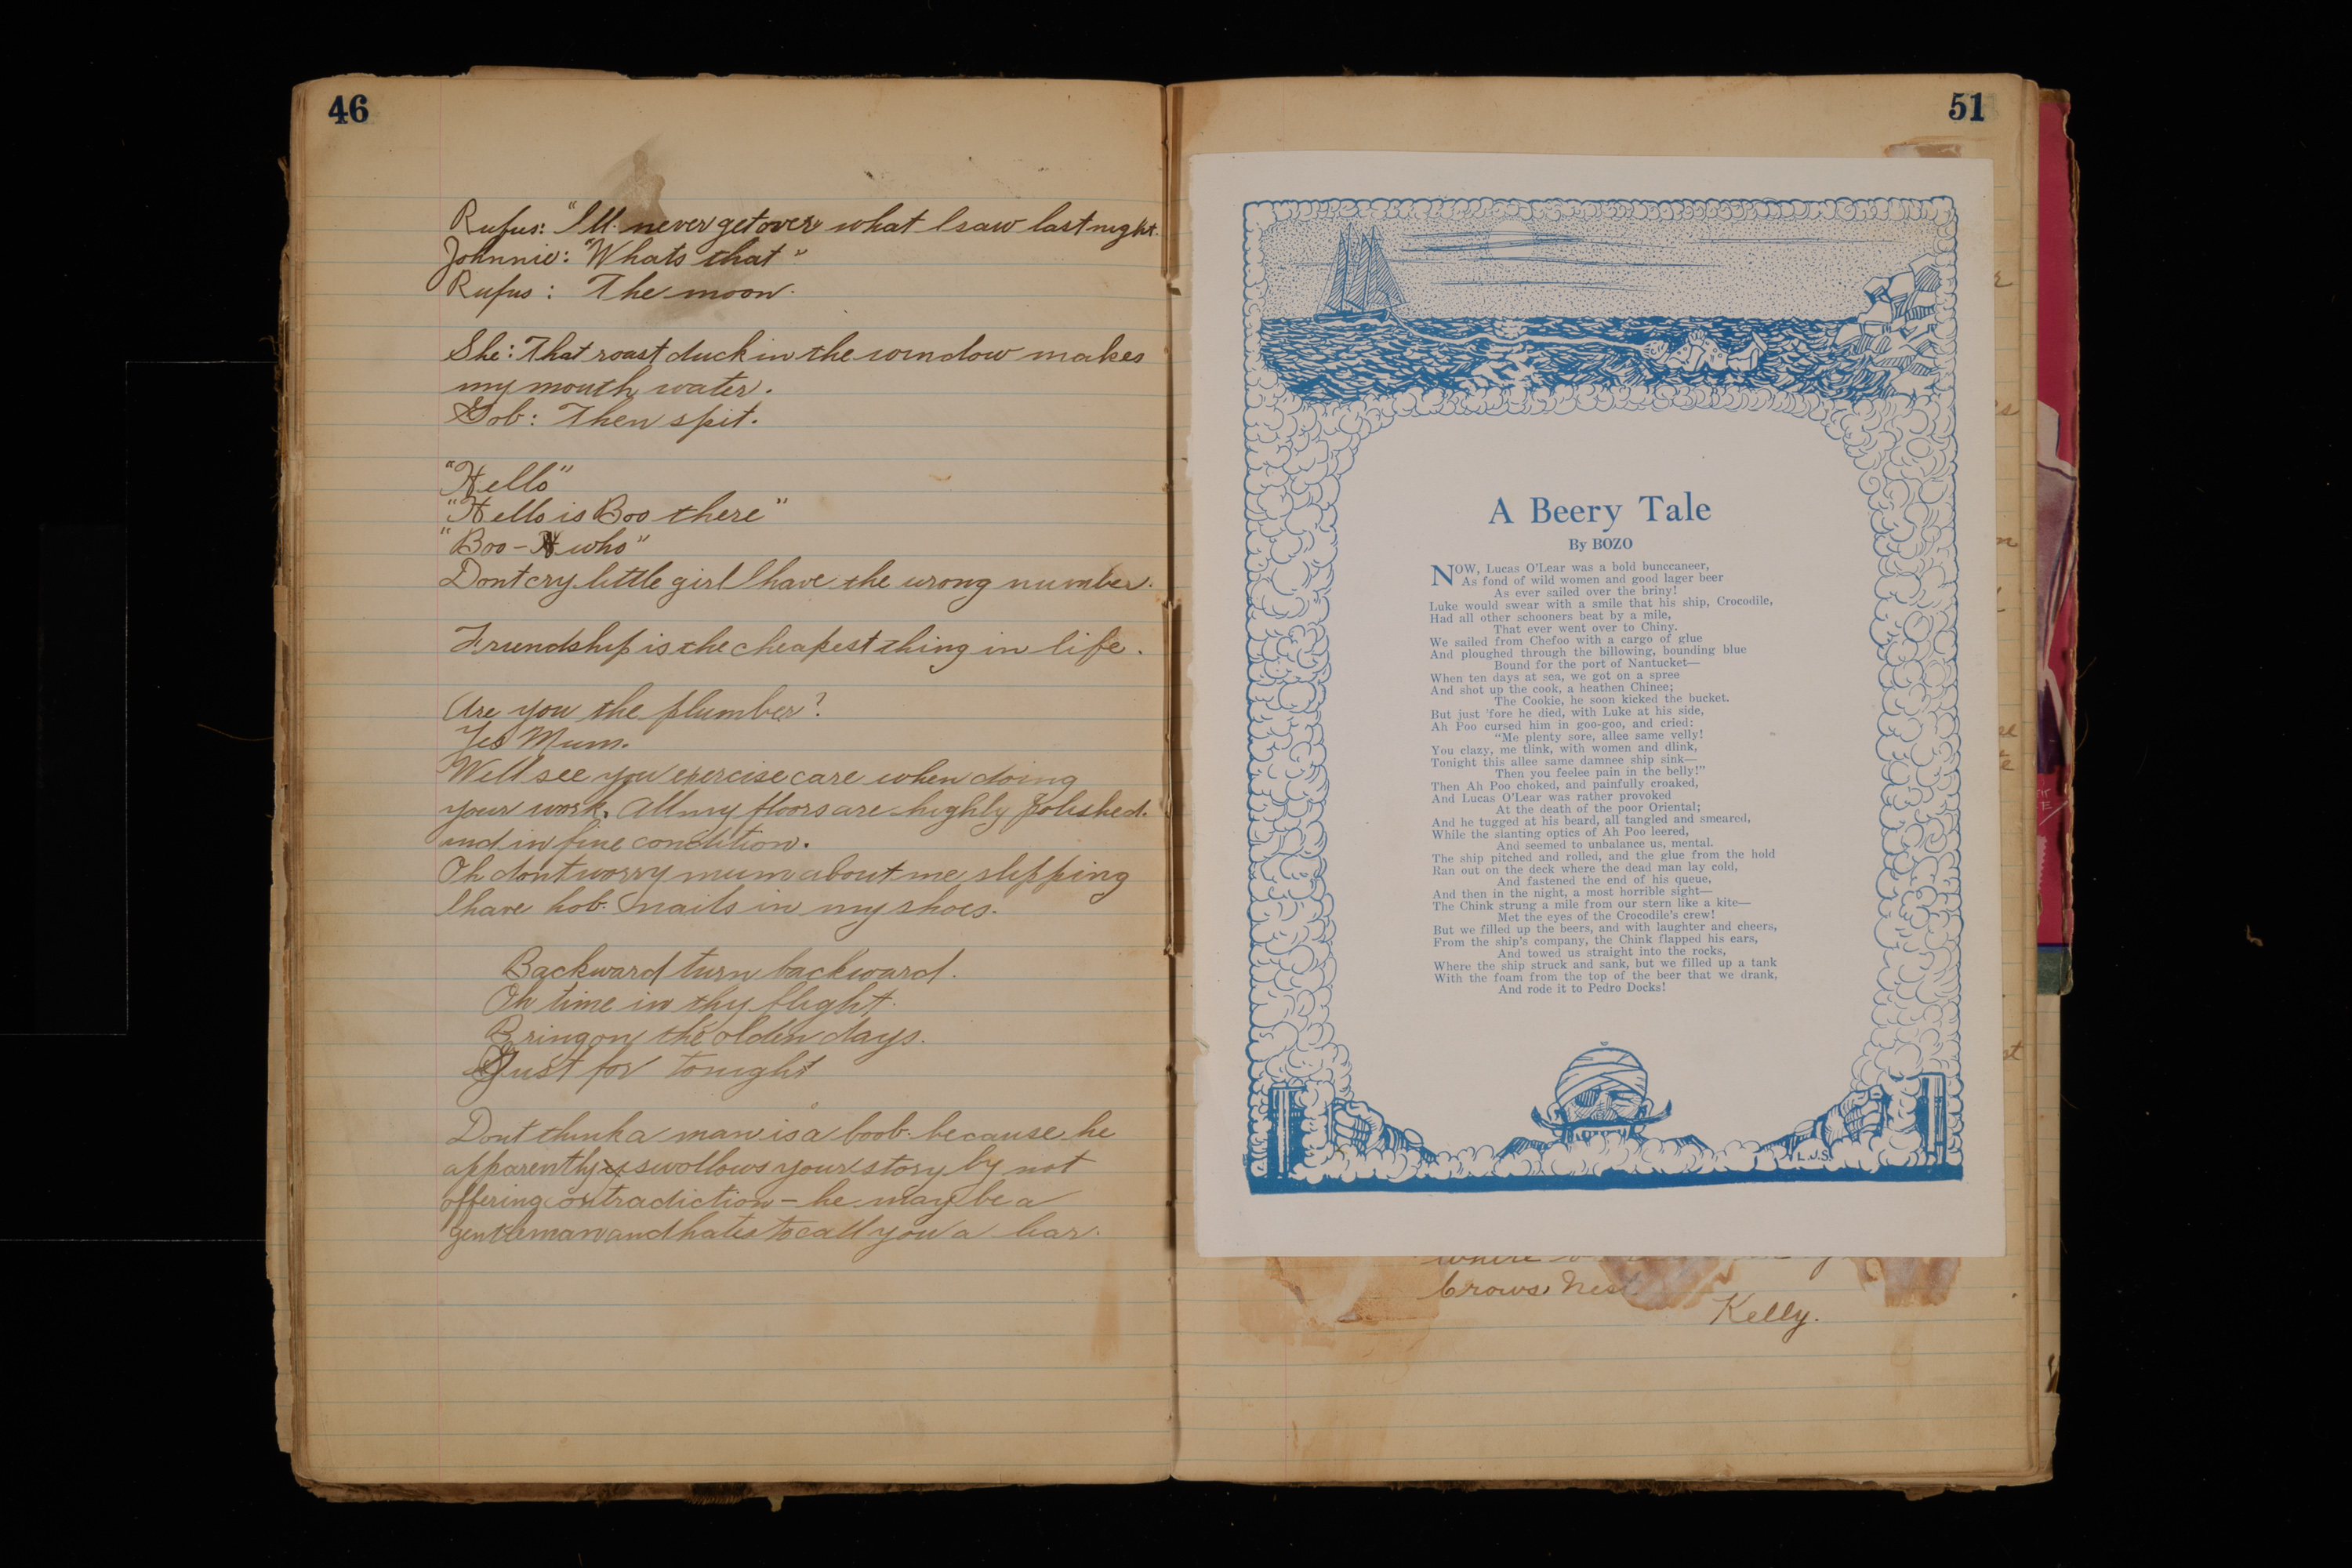 46
Rufus: "I'll never get over what I saw last night.
Johnnie: "Whats that"
Rufus: The moon.
She: That roast duck in the window makes
my mouth water.
Gob: Then spit.
"Hello"
"Hello is Boo there"
"Boo - who"
Dont cry little girl I have the wrong number.
Friendship is the cheapest thing in life.
Are you the plumber?
Yes Mum.
Well see you exercise care when doing
your work. All my floors are highly polished.
and in fine condition.
Oh dont worry mum about me slipping
I have hob nails in my shoes.
Backward turn backward.
Oh time in thy flight.
Bring on the olden days.
Just for tonight
Dont think a man is a boob because he
apparently swollows your story by not
offering contradiction - he may be a
gentleman and hates to call you a liar.
51
A Beery Tale
By BOZO
NOW, Lucas O'Lear was a bold bunccaneer,
As fond of wild women and good lager beer
As ever sailed over the briny!
Luke would swear with a smile that his ship, Crocodile,
Had all other schooners beat by a mile,
That ever went over to Chiny.
We sailed from Chefoo with a cargo of glue
And ploughed through the billowing, bounding blue
Bound for the port of Nantucket—
When ten days at sea, we got on a spree
And shot up the cook, a heathen Chinee;
The Cookie, he soon kicked the bucket.
But just 'fore he died, with Luke at his side,
Ah Poo cursed him in goo-goo, and cried:
"Me plenty sore, allee same velly!
You clazy, me tlink, with women and dlink,
Tonight this allee same damnee ship sink—
Then you feelee pain in the belly!"
Then Ah Poo choked, and painfully croaked,
And Lucas O'Lear was rather provoked
At the death of the poor Oriental;
And he tugged at his beard, all tangled and smeared,
While the slanting optics of Ah Poo leered,
And seemed to unbalance us, mental.
The ship pitched and rolled, and the glue from the hold
Ran out on the deck where the dead man lay cold,
And fastened the end of his queue,
And then in the night, a most horrible sight—
The Chink strung a mile from our stern like a kite—
Met the eyes of the Crocodile's crew!
But we filled up the beers, and with laughter and cheers,
From the ship's company, the Chink flapped his ears,
And towed us straight into the rocks,
Where the ship struck and sank, but we filled up a tank
With the foam from the top of the beer that we drank,
And rode it to Pedro Docks!
L.J.S.
where
Crows Nest
Kelly.